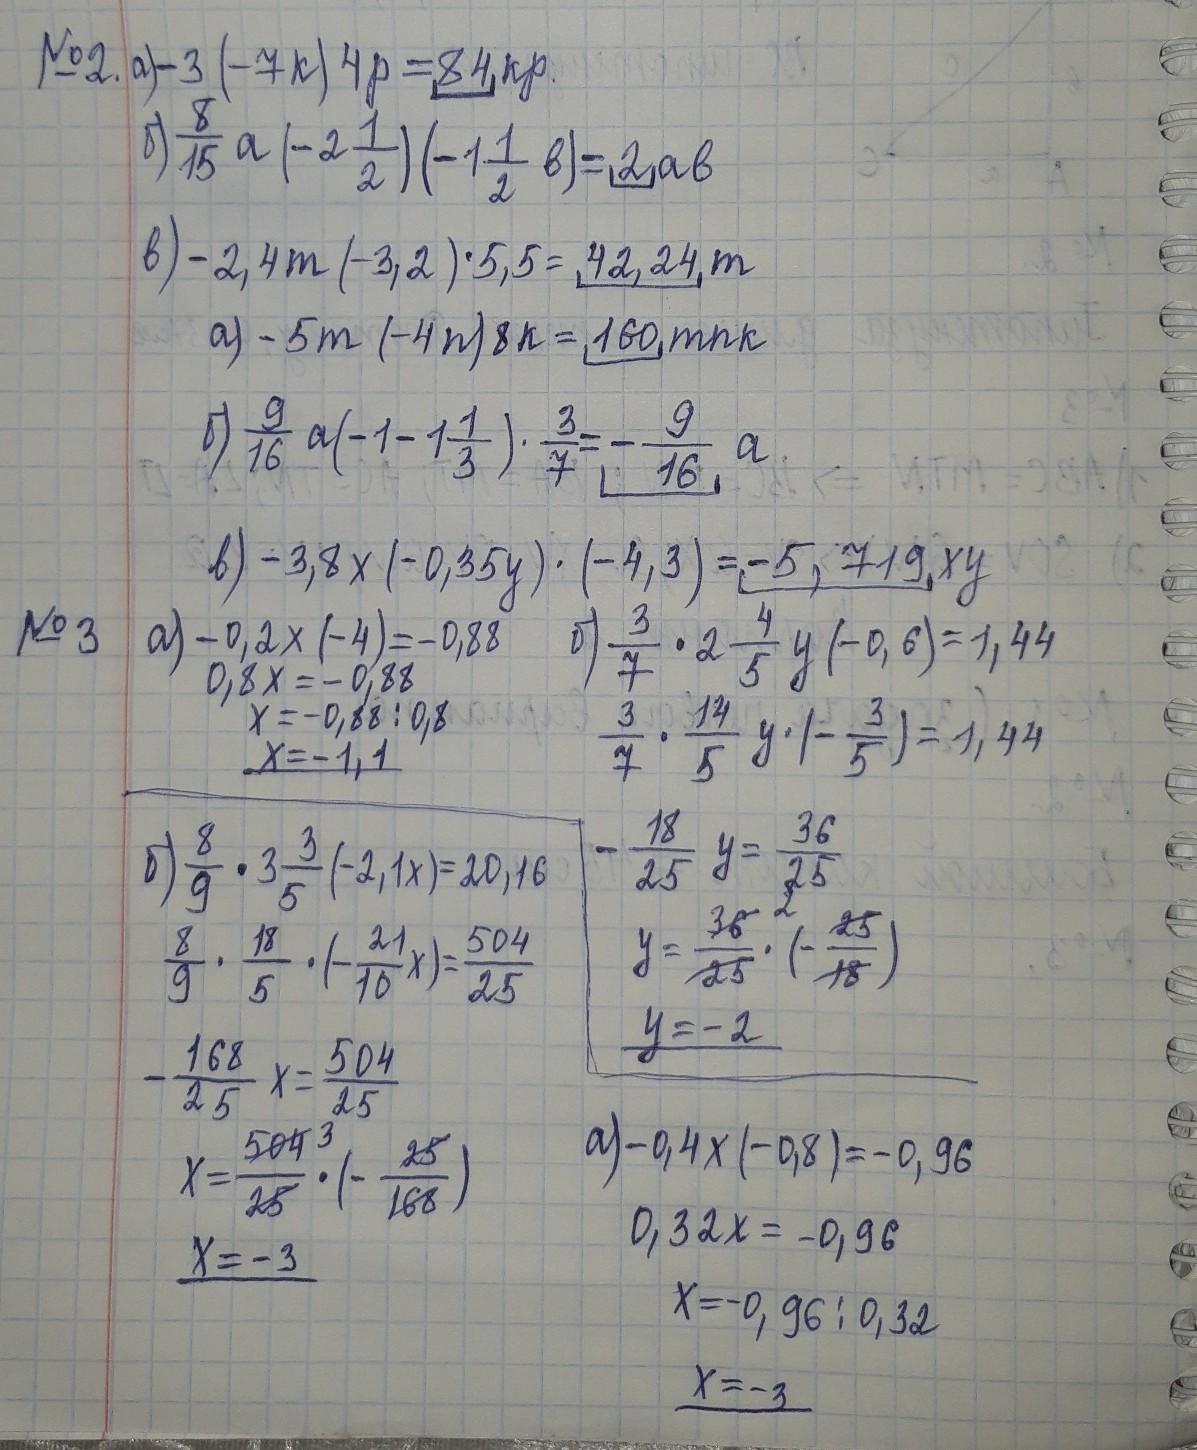 №2. а) -3 (-7к) 4р = 84 кр.
б) 8/15 а (-2 1/2) (-1 1/2 в) = 2 ав
в) -2,4m (-3,2) · 5,5 = 42,24 m
а) -5m (-4n) 8к = 160 mnк
б) 9/16 а (-1 - 1 1/3) · 3/7 = - 9/16 а
в) -3,8х (-0,35у) · (-4,3) = -5,719 ху
№3 а) -0,2х (-4) = -0,88
0,8х = -0,88
х = -0,88 : 0,8
х = -1,1
б) 3/7 · 2 4/5 у (-0,6) = 1,44
3/7 · 14/5 у · (- 3/5) = 1,44
- 18/25 у = 36/25
у = 36/25 · (- 25/18) 2
у = -2
б) 8/9 · 3 3/5 (-2,1х) = 20,16
8/9 · 18/5 · (- 21/10 х) = 504/25
- 168/25 х = 504/25
х = 504/25 3 · (- 25/168)
х = -3
а) -0,4х (-0,8) = -0,96
0,32х = -0,96
х = -0,96 : 0,32
х = -3